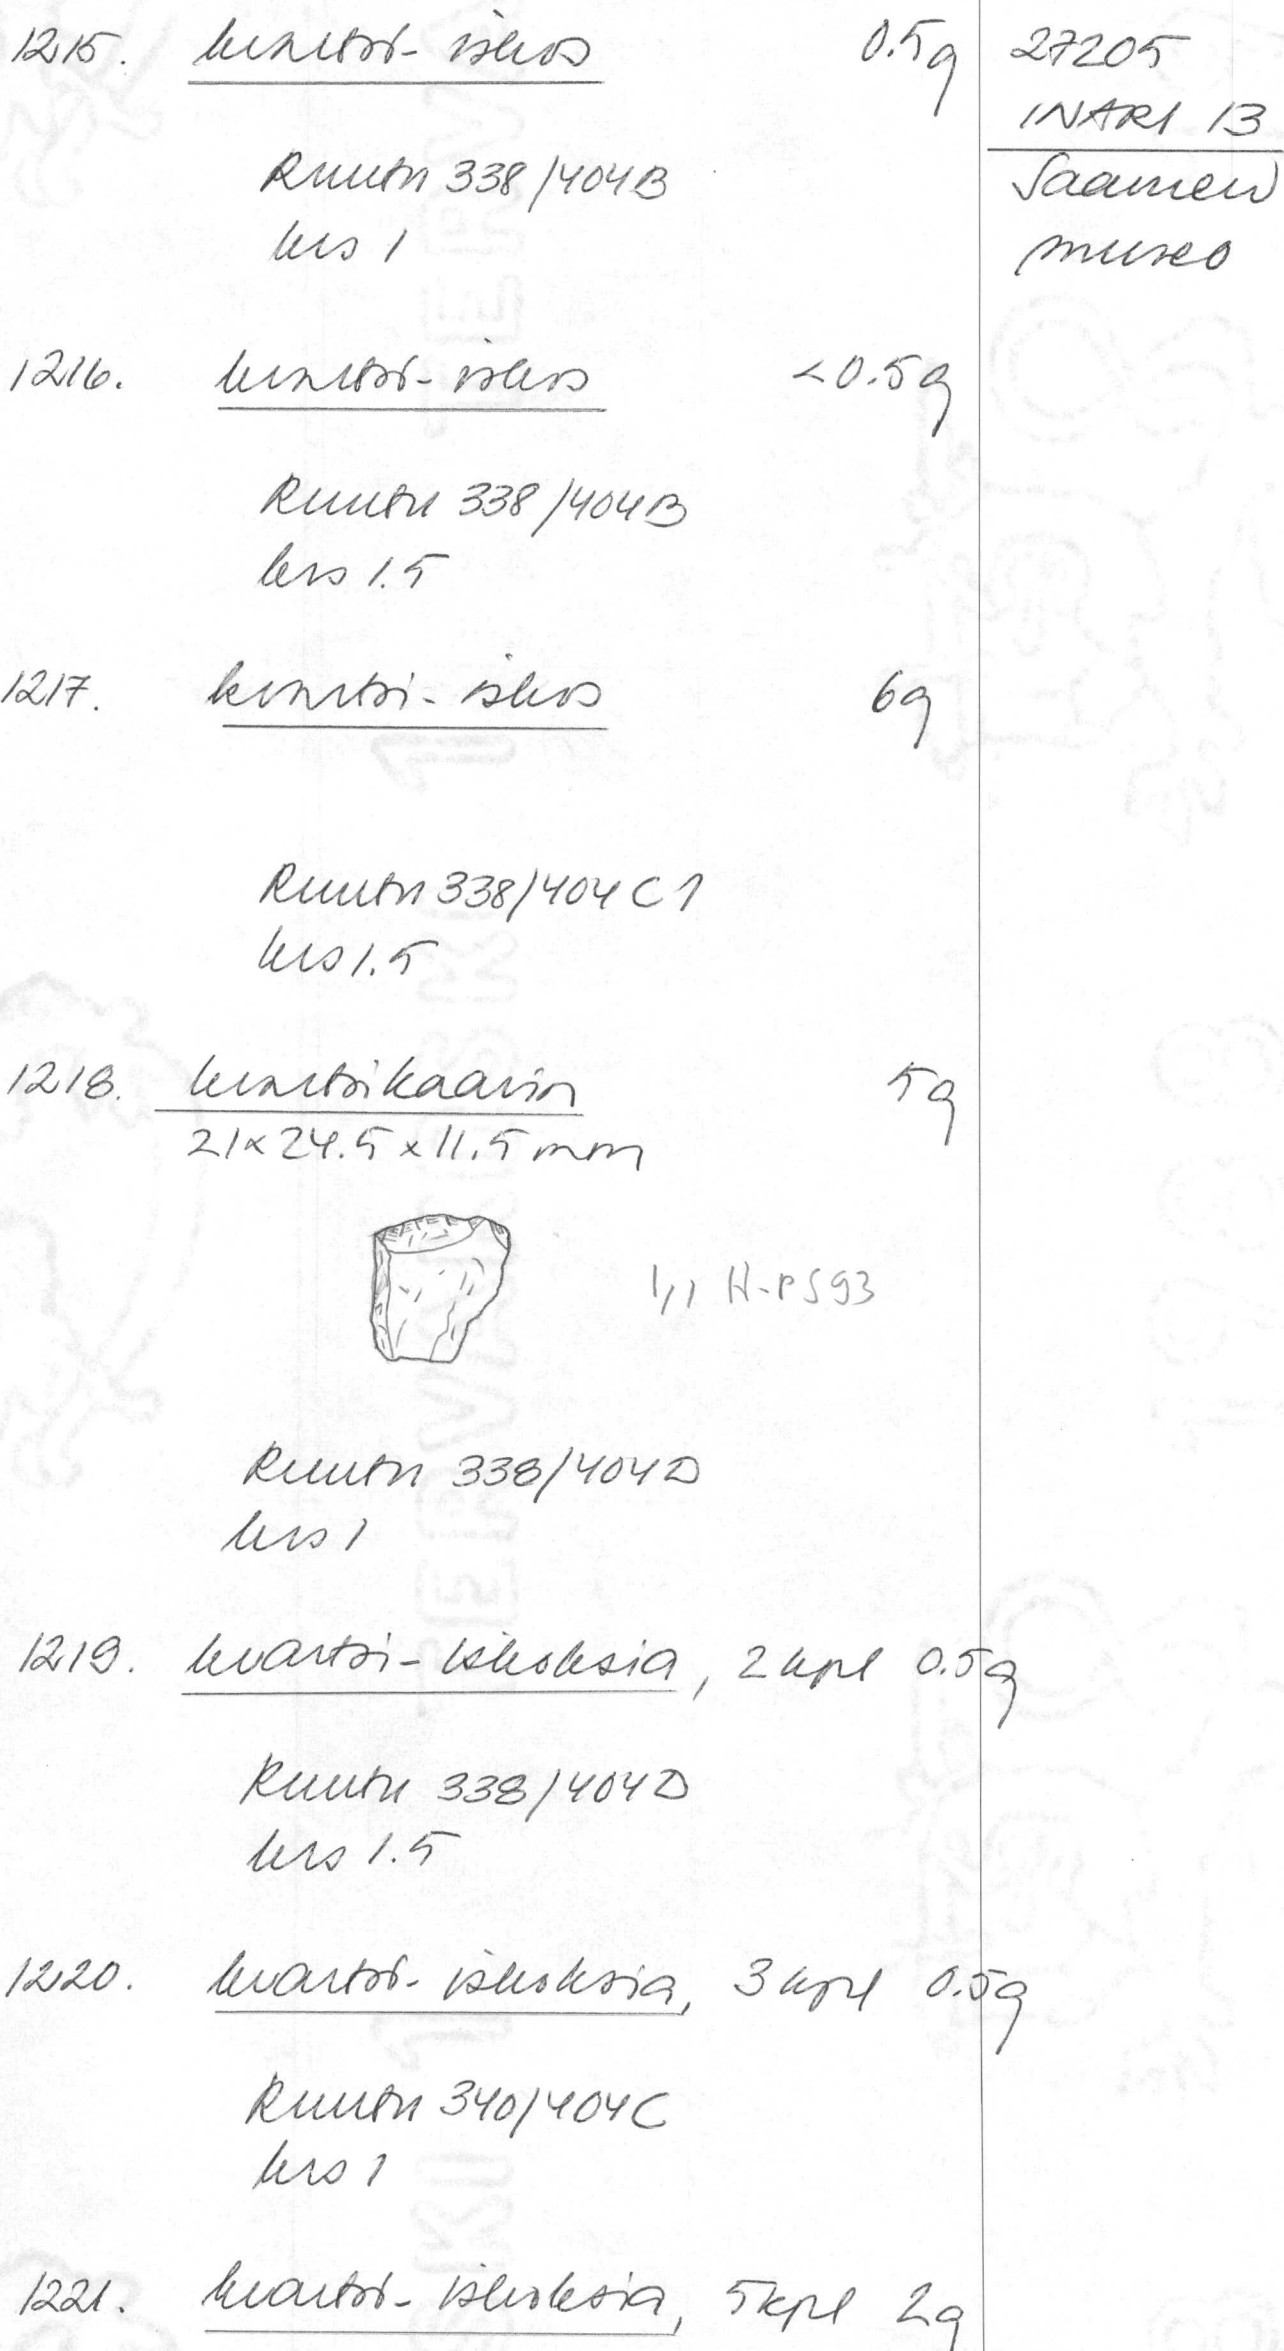 1215. kvartsi-iskos 0.5g
27205
INARI 13
Saamen
museo
Ruutu 338/404B
krs 1
1216. kvartsi-iskos <0.5g
Ruutu 338/404B
krs 1.5
1217. kvartsi-iskos 6g
Ruutu 338/404C1
krs 1.5
1218. kvartsikaavin 5g
21x24.5x11.5mm
1/1 H-PS93
Ruutu 338/404D
krs 1
1219. kvartsi-iskoksia, 2kpl 0.5g
Ruutu 338/404D
krs 1.5
1220. kvartsi-iskoksia, 3kpl 0.5g
Ruutu 340/404C
krs 1
1221. kvartsi-iskoksia, 5kpl 2g